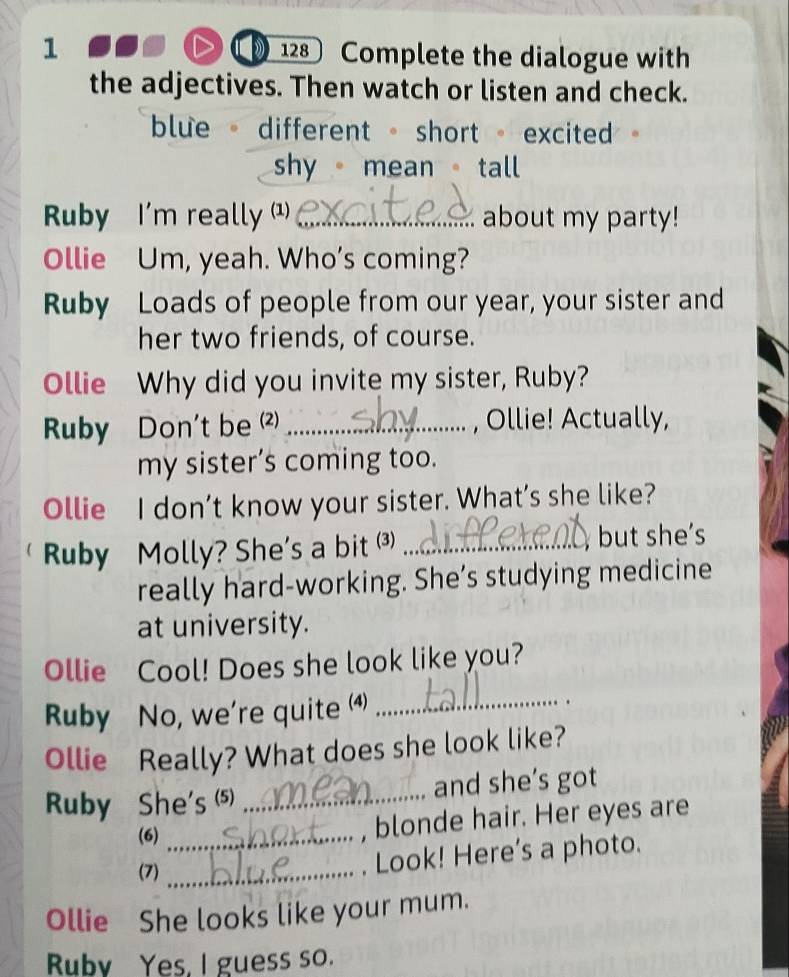 1 128 Complete the dialogue with
the adjectives. Then watch or listen and check.
blue • different • short • excited •
shy • mean • tall
Ruby I'm really (1) excited about my party!
Ollie Um, yeah. Who's coming?
Ruby Loads of people from our year, your sister and
her two friends, of course.
Ollie Why did you invite my sister, Ruby?
Ruby Don't be (2) shy, Ollie! Actually,
my sister's coming too.
Ollie I don't know your sister. What's she like?
Ruby Molly? She's a bit (3) different, but she's
really hard-working. She's studying medicine
at university.
Ollie Cool! Does she look like you?
Ruby No, we're quite (4) tall.
Ollie Really? What does she look like?
Ruby She's (5) mean and she's got
(6) short, blonde hair. Her eyes are
(7) blue. Look! Here's a photo.
Ollie She looks like your mum.
Ruby Yes, I guess so.